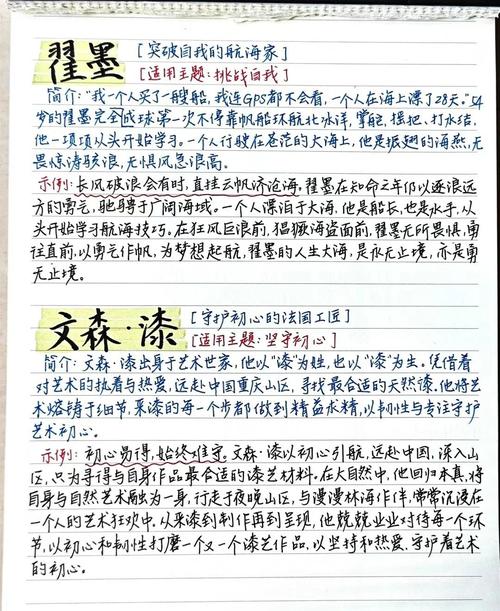 翟墨 [突破自我的航海家]
[适用主题:挑战自我]
简介:"我一个人买了一艘船,我连GPS都不会看,一个人在海上漂了28天。"54
岁的翟墨完全成球第一次不停靠帆船环航北冰洋,掌舵、摇把、打水结,
他一项项从头开始学习。一个人行驶在苍茫的大海上,他是振翅的海燕,无
畏惊涛骇浪,无惧风急浪高。
示例:长风破浪会有时,直挂云帆济沧海,翟墨在知命之年仍以逐浪远
方的勇气,驰骋于广阔海域。一个人漂泊于大海,他是船长,也是水手,从
头开始学习航海技巧。在狂风巨浪前,猖獗海盗面前,翟墨无所畏惧,勇
往直前,以勇气作帆,为梦想起航,翟墨的人生大海,是永无止境,亦是勇
无止境。
文森·漆 [守护初心的法国工匠]
[适用主题:坚守初心]
简介:文森·漆出身于艺术世家,他以"漆"为姓,也以"漆"为生。凭借着
对艺术的执着与热爱,远赴中国重庆山区,寻找最合适的天然漆,他将艺
术熔铸于细节,采漆的每一个步都做到精益求精,以韧性与专注守护
艺术初心。
示例:初心易得,始终难守。文森·漆以初心引航,远赴中国,深入山
区,只为寻得与自身作品最合适的漆艺材料。在大自然中,他回归本真,将
自身与自然艺术融为一身,行走于夜晚山区,与漫漫林海作伴,常常沉浸在
一个人的艺术狂欢中,从采漆到制作再到呈现,他兢兢业业对待每一个环
节,以初心和韧性打磨一个又一个漆艺作品,以坚持和热爱,守护着艺术
的初心。